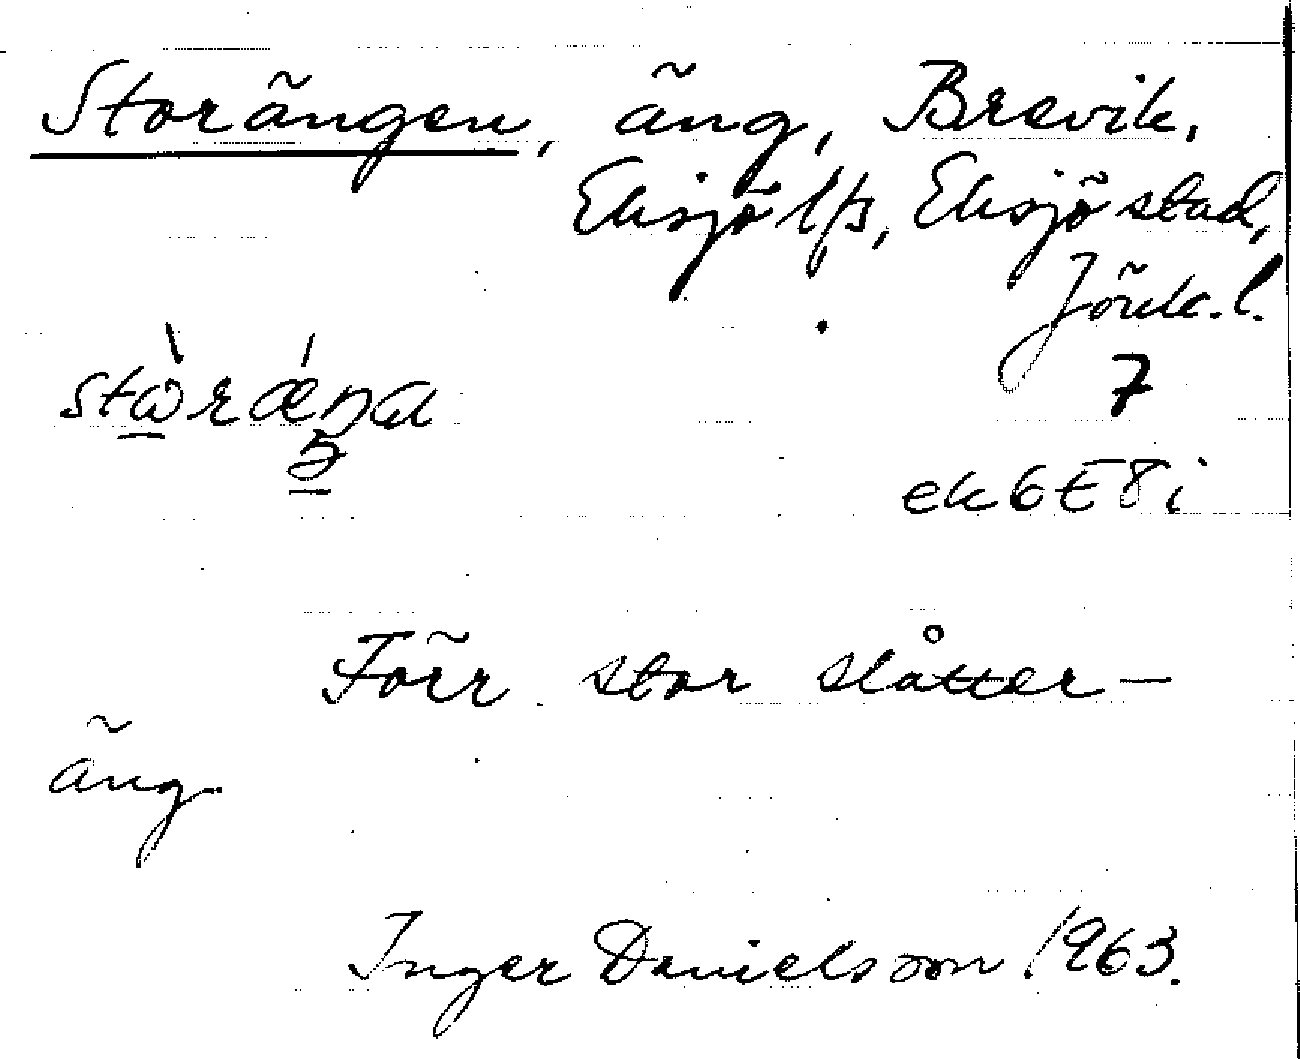 Storängen, äng, Brevik,
Eksjö lfs, Eksjö stad,
Jönk. l.
stòrǽŋa
7
ek 6E8i
Förr stor slåtter-
äng.
Inger Danielsson 1963.